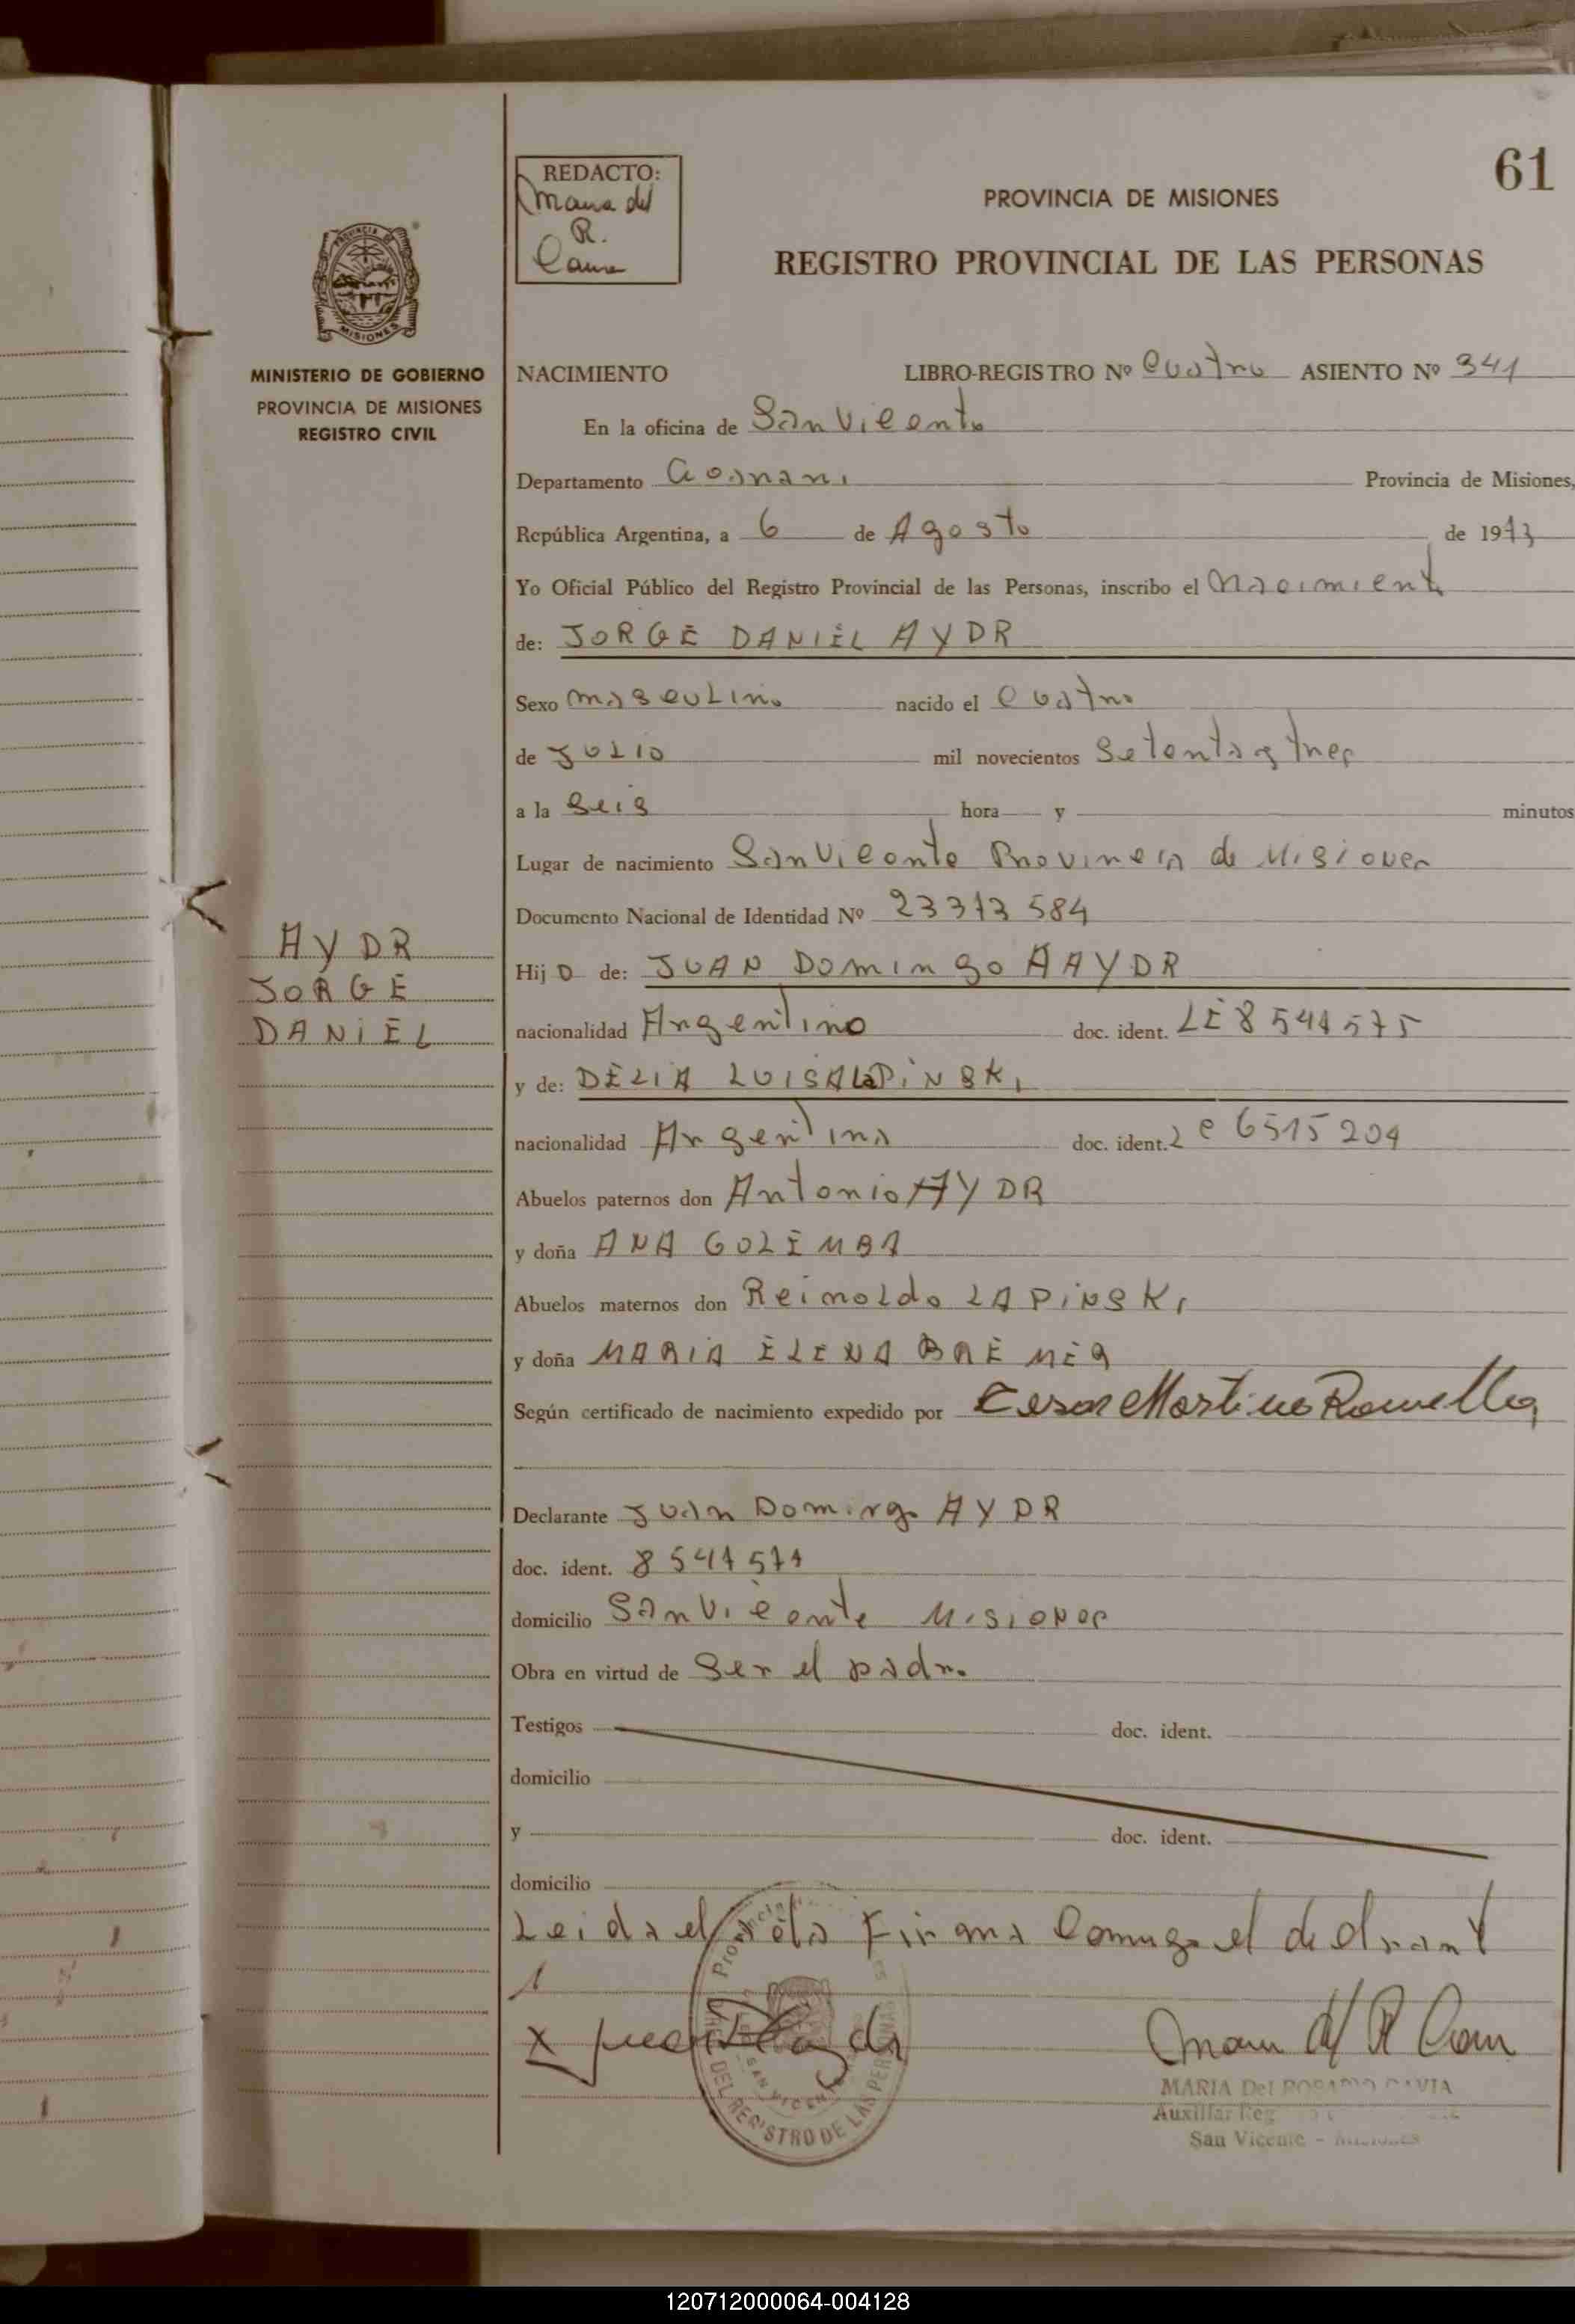 61
REDACTO:
Maria del
R.
PROVINCIA DE MISIONES
REGISTRO PROVINCIAL DE LAS PERSONAS
PROVINCIA DE
MISIONES
MINISTERIO DE GOBIERNO
PROVINCIA DE MISIONES
REGISTRO CIVIL
NACIMIENTO LIBRO-REGISTRO Nº Cuatro ASIENTO Nº 341
En la oficina de San Vicente
Departamento Provincia de Misiones,
República Argentina, a 6 de Agosto de 1973
Yo Oficial Público del Registro Provincial de las Personas, inscribo el nacimiento
de: JORGE DANIEL AYDR
Sexo masculino nacido el cuatro
de Julio mil novecientos Setenta y tres
a la Seis hora y minutos
Lugar de nacimiento San Vicente Provincia de Misiones
Documento Nacional de Identidad Nº 23373584
AYDR
JORGE
DANIEL
Hijo de: JUAN Domingo AAYDR
nacionalidad Argentino doc. ident. LE
y de: DELIA LUISA LAPINSKi
nacionalidad Argentina doc. ident. Lc 6515204
Abuelos paternos don Antonio AYDR
y doña ANA GOLEMBA
Abuelos maternos don Reinoldo LAPiNSKi
y doña MARIA ELENA
Según certificado de nacimiento expedido por Martino
Declarante Juan Domingo AYDR
doc. ident.
domicilio San Vicente Misiones
Obra en virtud de Ser el padre
Testigos doc. ident.
domicilio
y doc. ident.
domicilio
Leida el acta Firma Conmigo el declarant
MARIA Del ROSARIO
Auxiliar Reg
San Vicente - Misiones
DEL REGISTRO DE LAS PERSONAS
SAN VICENTE
120712000064-004128